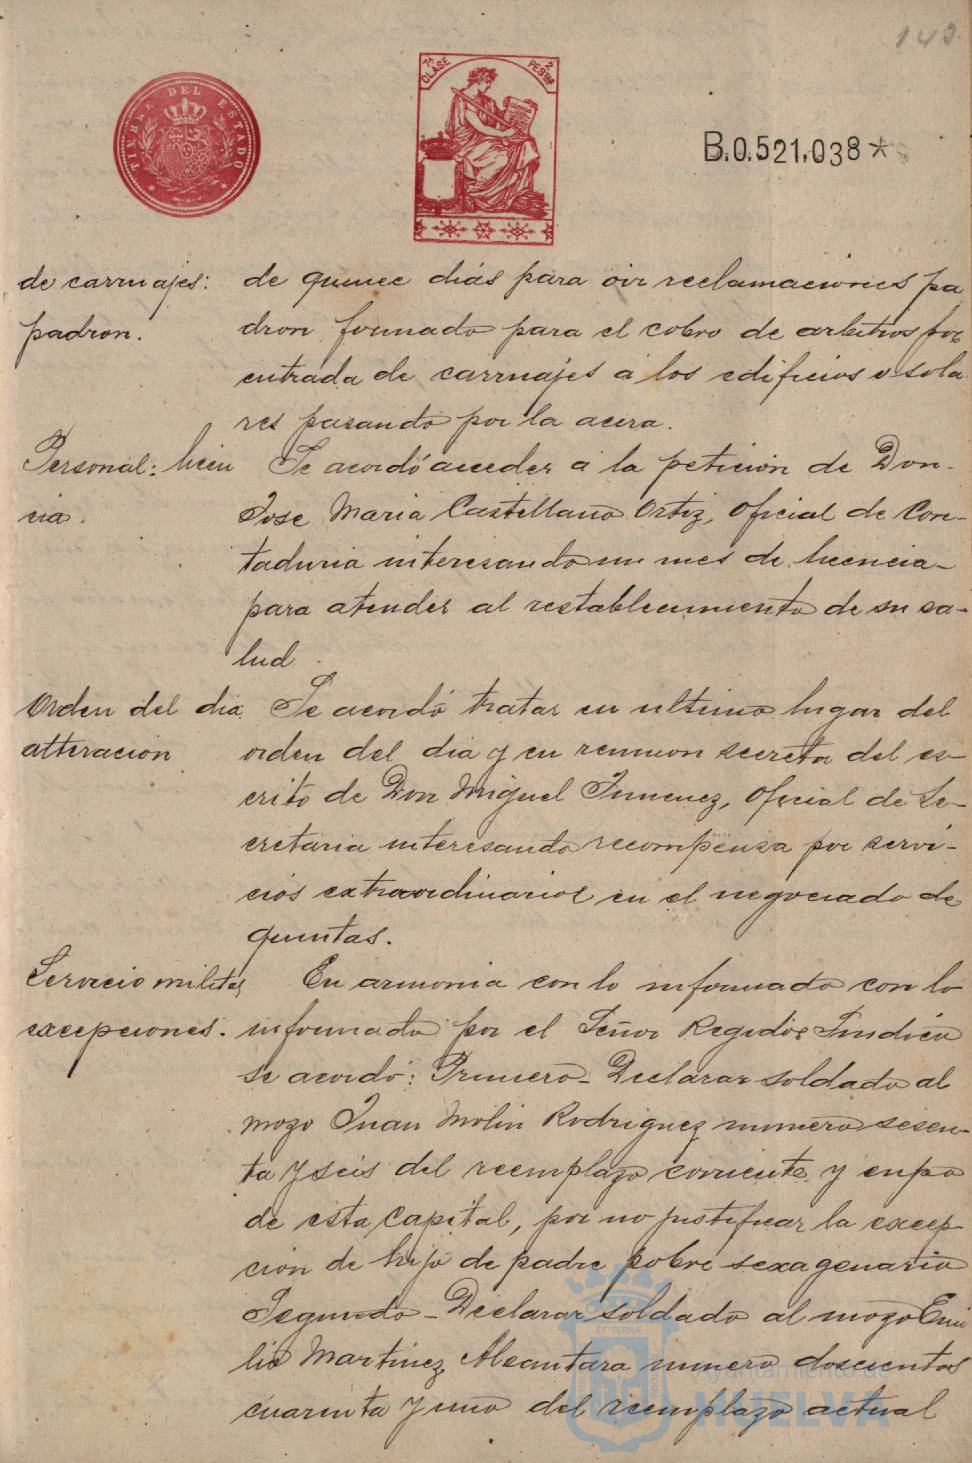 143
TIMBRE DEL ESTADO
7ª CLASE
2 PESTAS
B.0.521.038*
de carruajes:
padron.
de quince dias para oir reclamaciones pa
dron formado para el cobro de arbitrios por
entrada de carruajes á los edificios ó sola
res pasando por la acera.
Personal: licen
cia.
Se acordó acceder á la petición de Don
Jose Maria Castellano Ortiz, Oficial de Con-
taduria interesando un mes de licencia
para atender al restablecimiento de su sa-
lud
Orden del dia
alteracion
Se acordó tratar en ultimo lugar del
orden del dia y en reunion secreta del es-
crito de Don Miguel Jimenez, Oficial de Se-
cretaria interesando recompensa por servi-
cios extraordinarios en el negociado de
quintas.
Servicio militar
excepciones.
En armonia con lo informado con lo
informado por el Señor Regidor Sindico
se acordó: Primero- Declarar soldado al
mozo Juan Molin Rodriguez numero sesen-
ta y seis del reemplazo corriente y cupo
de esta Capital, por no justificar la excep-
ción de hijo de padre pobre sexagenario
Segundo- Declarar soldado al mozo Emi
lio Martinez Alcantara numero doscientos
cuarenta y uno del reemplazo actual
Ayuntamiento de
HUELVA